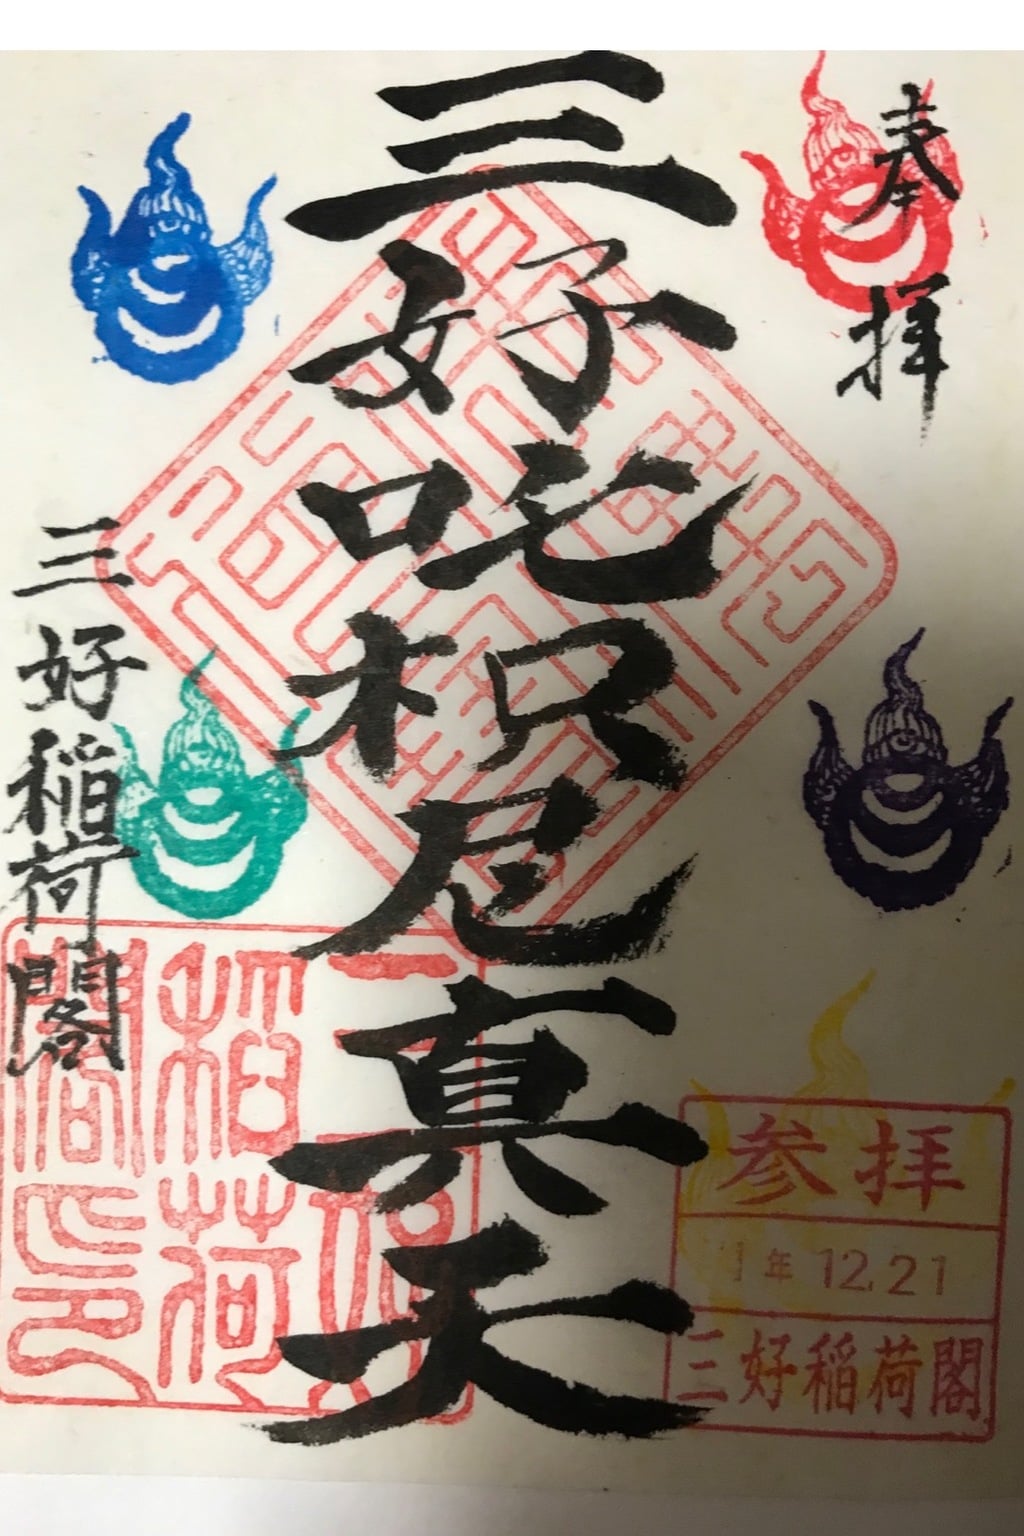 奉拝
三好叱枳尼真天
三好稲荷閣
稲荷閣印
参拝
1年 12.21
三好稲荷閣